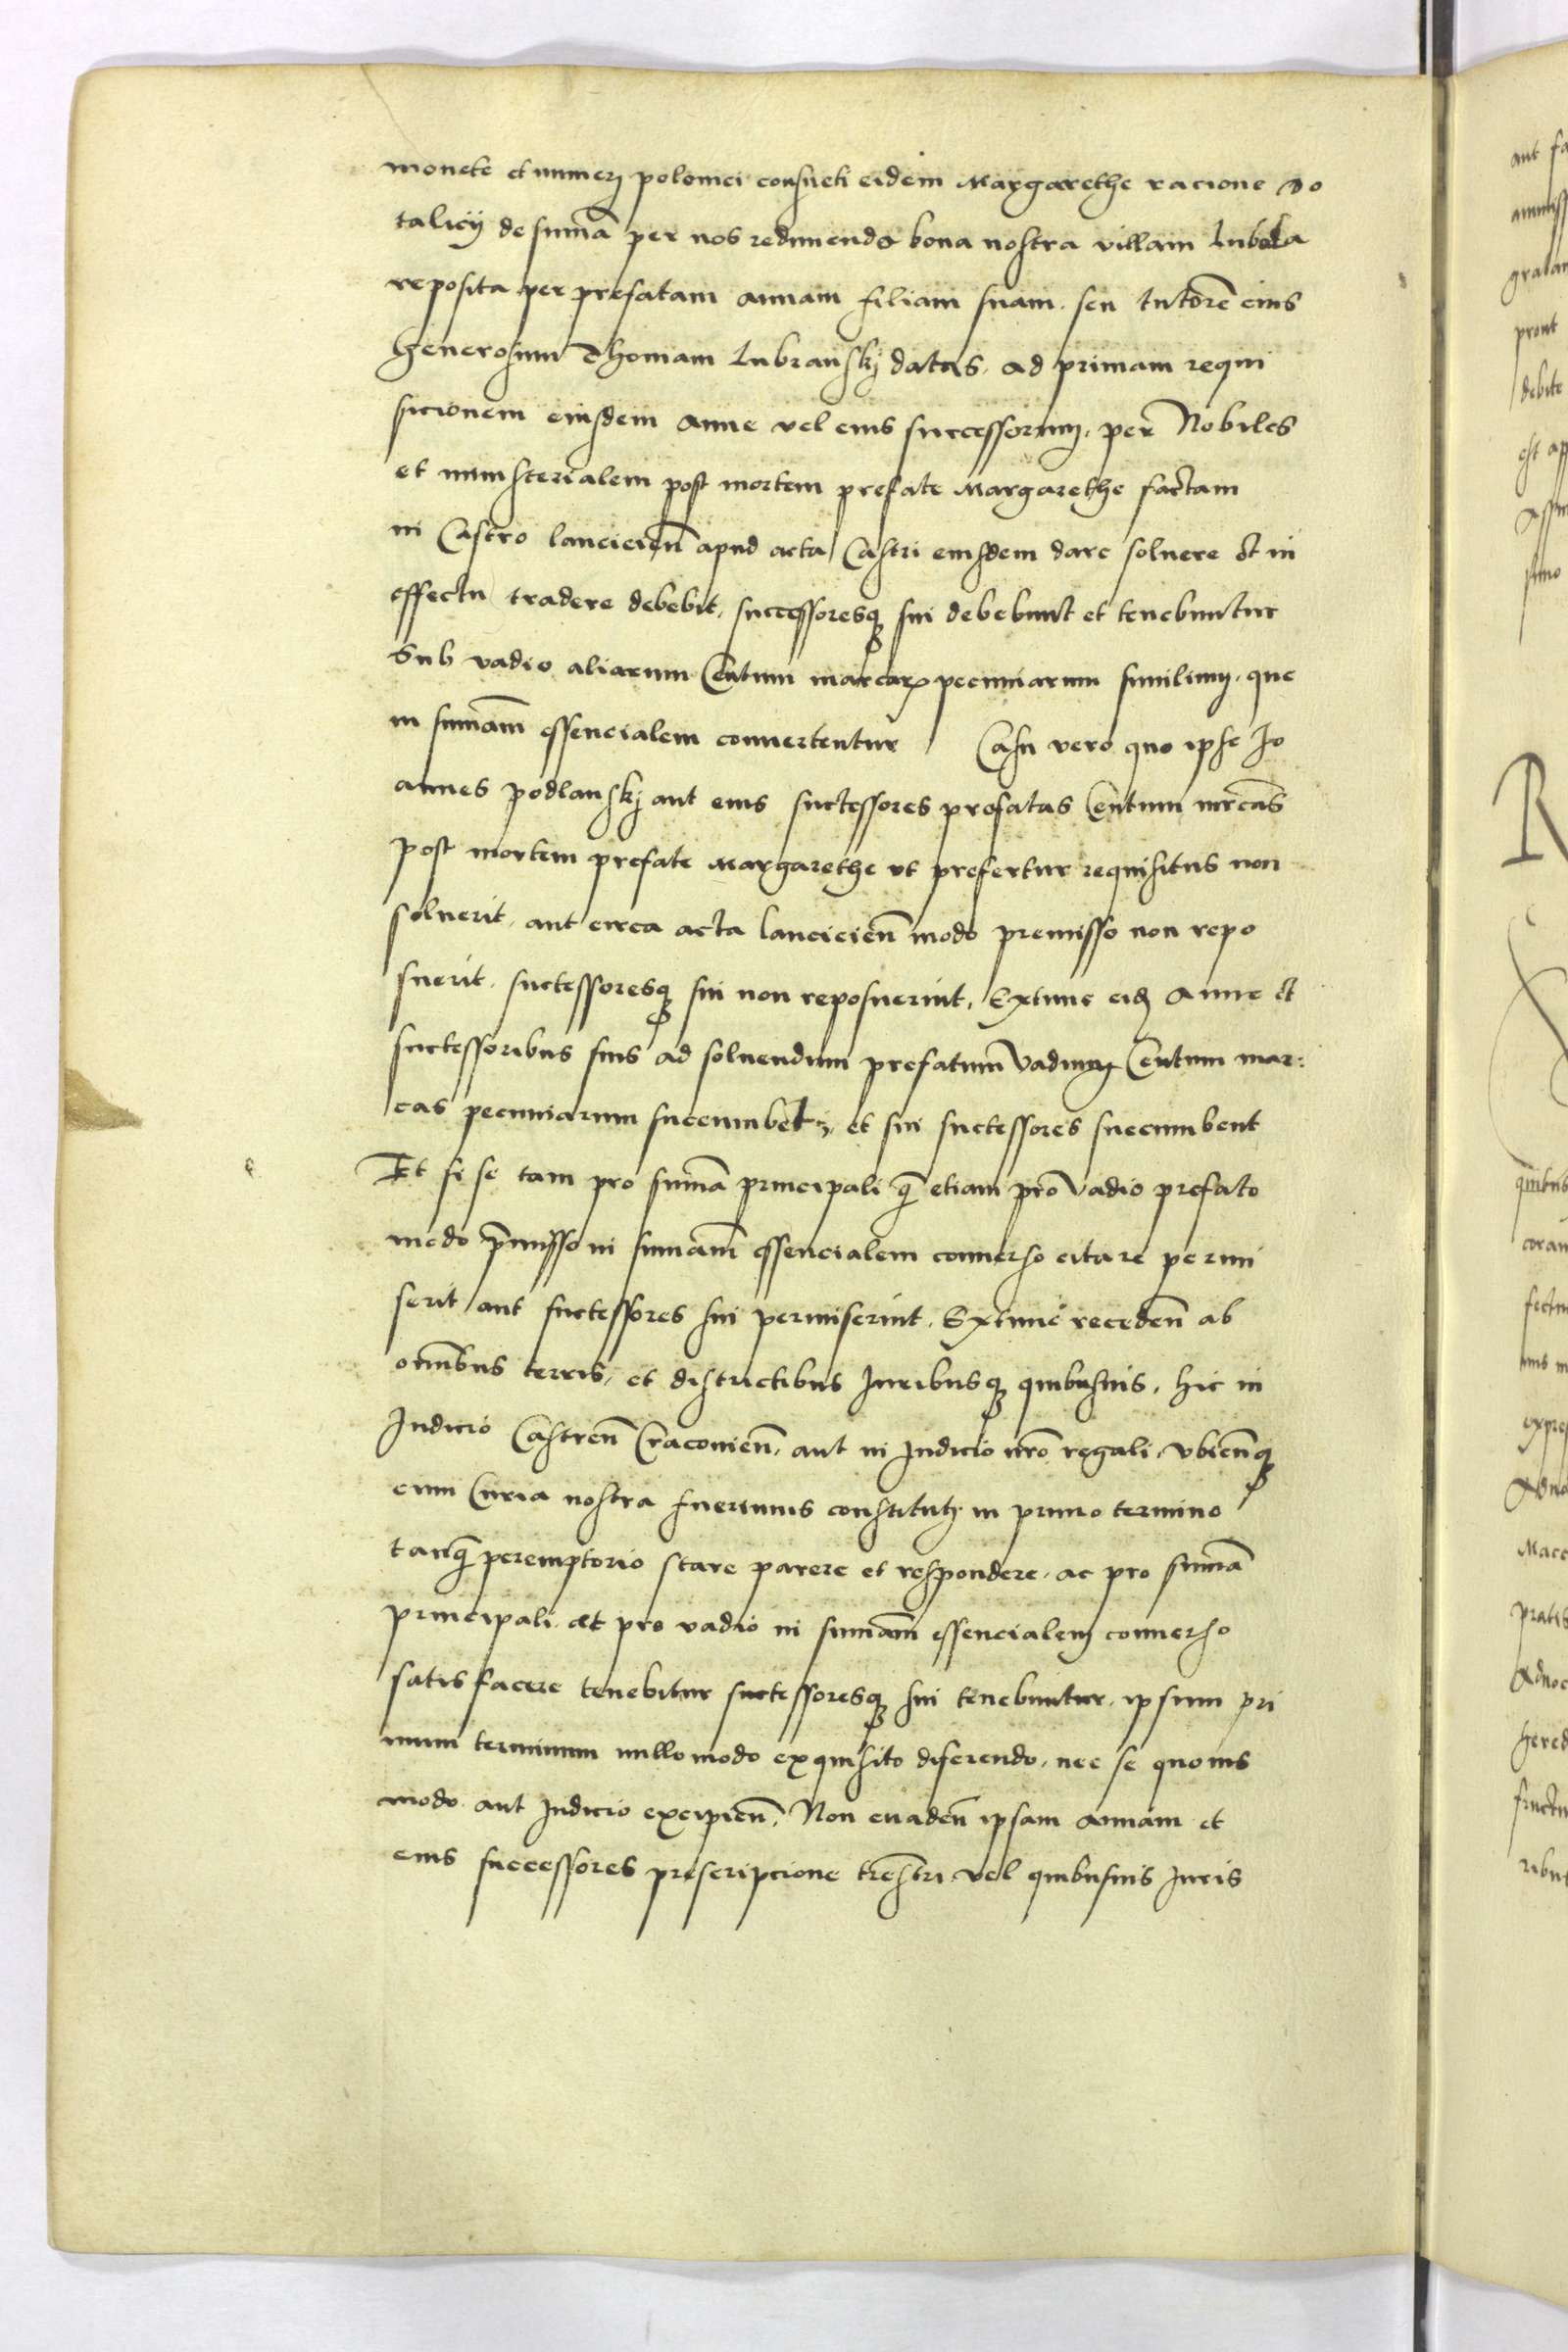 monete et numeri polonici consueti eidem Margarethe racione do
talicij de summa per nos redimendo bona nostra villam Lubola
reposita per prefatam annam filiam suam. seu tutorē eius
Generosum Thomam Lubranskj datas. ad primam requi
sicionem eiusdem Anne vel eius successorum, per Nobiles
et ministerialem post mortem prefate Margarethe factam
in Castro lancicieñ apud acta Castri eiusdem dare soluere et in
effectu tradere debebit, successoresq sui debebunt et tenebuntur
Sub vadio aliarum Centum marcarum pecuniarum similium. que
in summam essencialem conuertentur Casu vero quo ipse Jo
annes podlanskj aut eius successores prefatas Centum mrcas
post mortem prefate Margarethe vt prefertur requisitus non
soluerit, aut circa acta lancicieñ modo premisso non repo
suerit. successoresq sui non reposuerint, Extunc eid Anne et
successoribus suis ad soluendum prefatum vadium Centum mar:
cas pecuniarum succumbet, et sui successores succumbent
Et si se tam pro summa principali q̃ etiam pro vadio prefato
modo p̃misso in summam essencialem conuerso citare permi
serit aut successores sui permiserint. Extunc recedeñ ab
omībus terris, et districtibus Juribusq quibusuis, hic in
Judicio Castreñ Cracouieñ, aut in Judicio nrō regali, vbicunq
cum Curia nostra fuerimus constituti in primo termino
tanq̃ peremptorio stare parere et respondere. ac pro summa
principali et pro vadio in summam essencialem conuerso
satisfacere tenebitur successoresq sui tenebuntur. ipsum pri
mum terminum nullo modo exquisito diferendo, nec se quouis
modo aut Judicio excipieñ, Non euadeñ ipsam annam et
eius successores prescripcione trēstri vel quibusuis Juris